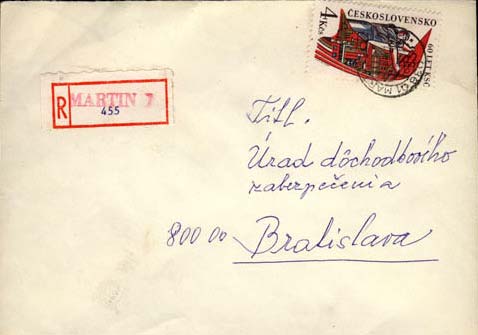 4 Kčs
ČESKOSLOVENSKO
60 LET KSČ
R
MARTIN 7
455
Titl.
Úrad dôchodkového
zabezpečenia
800 00 Bratislava